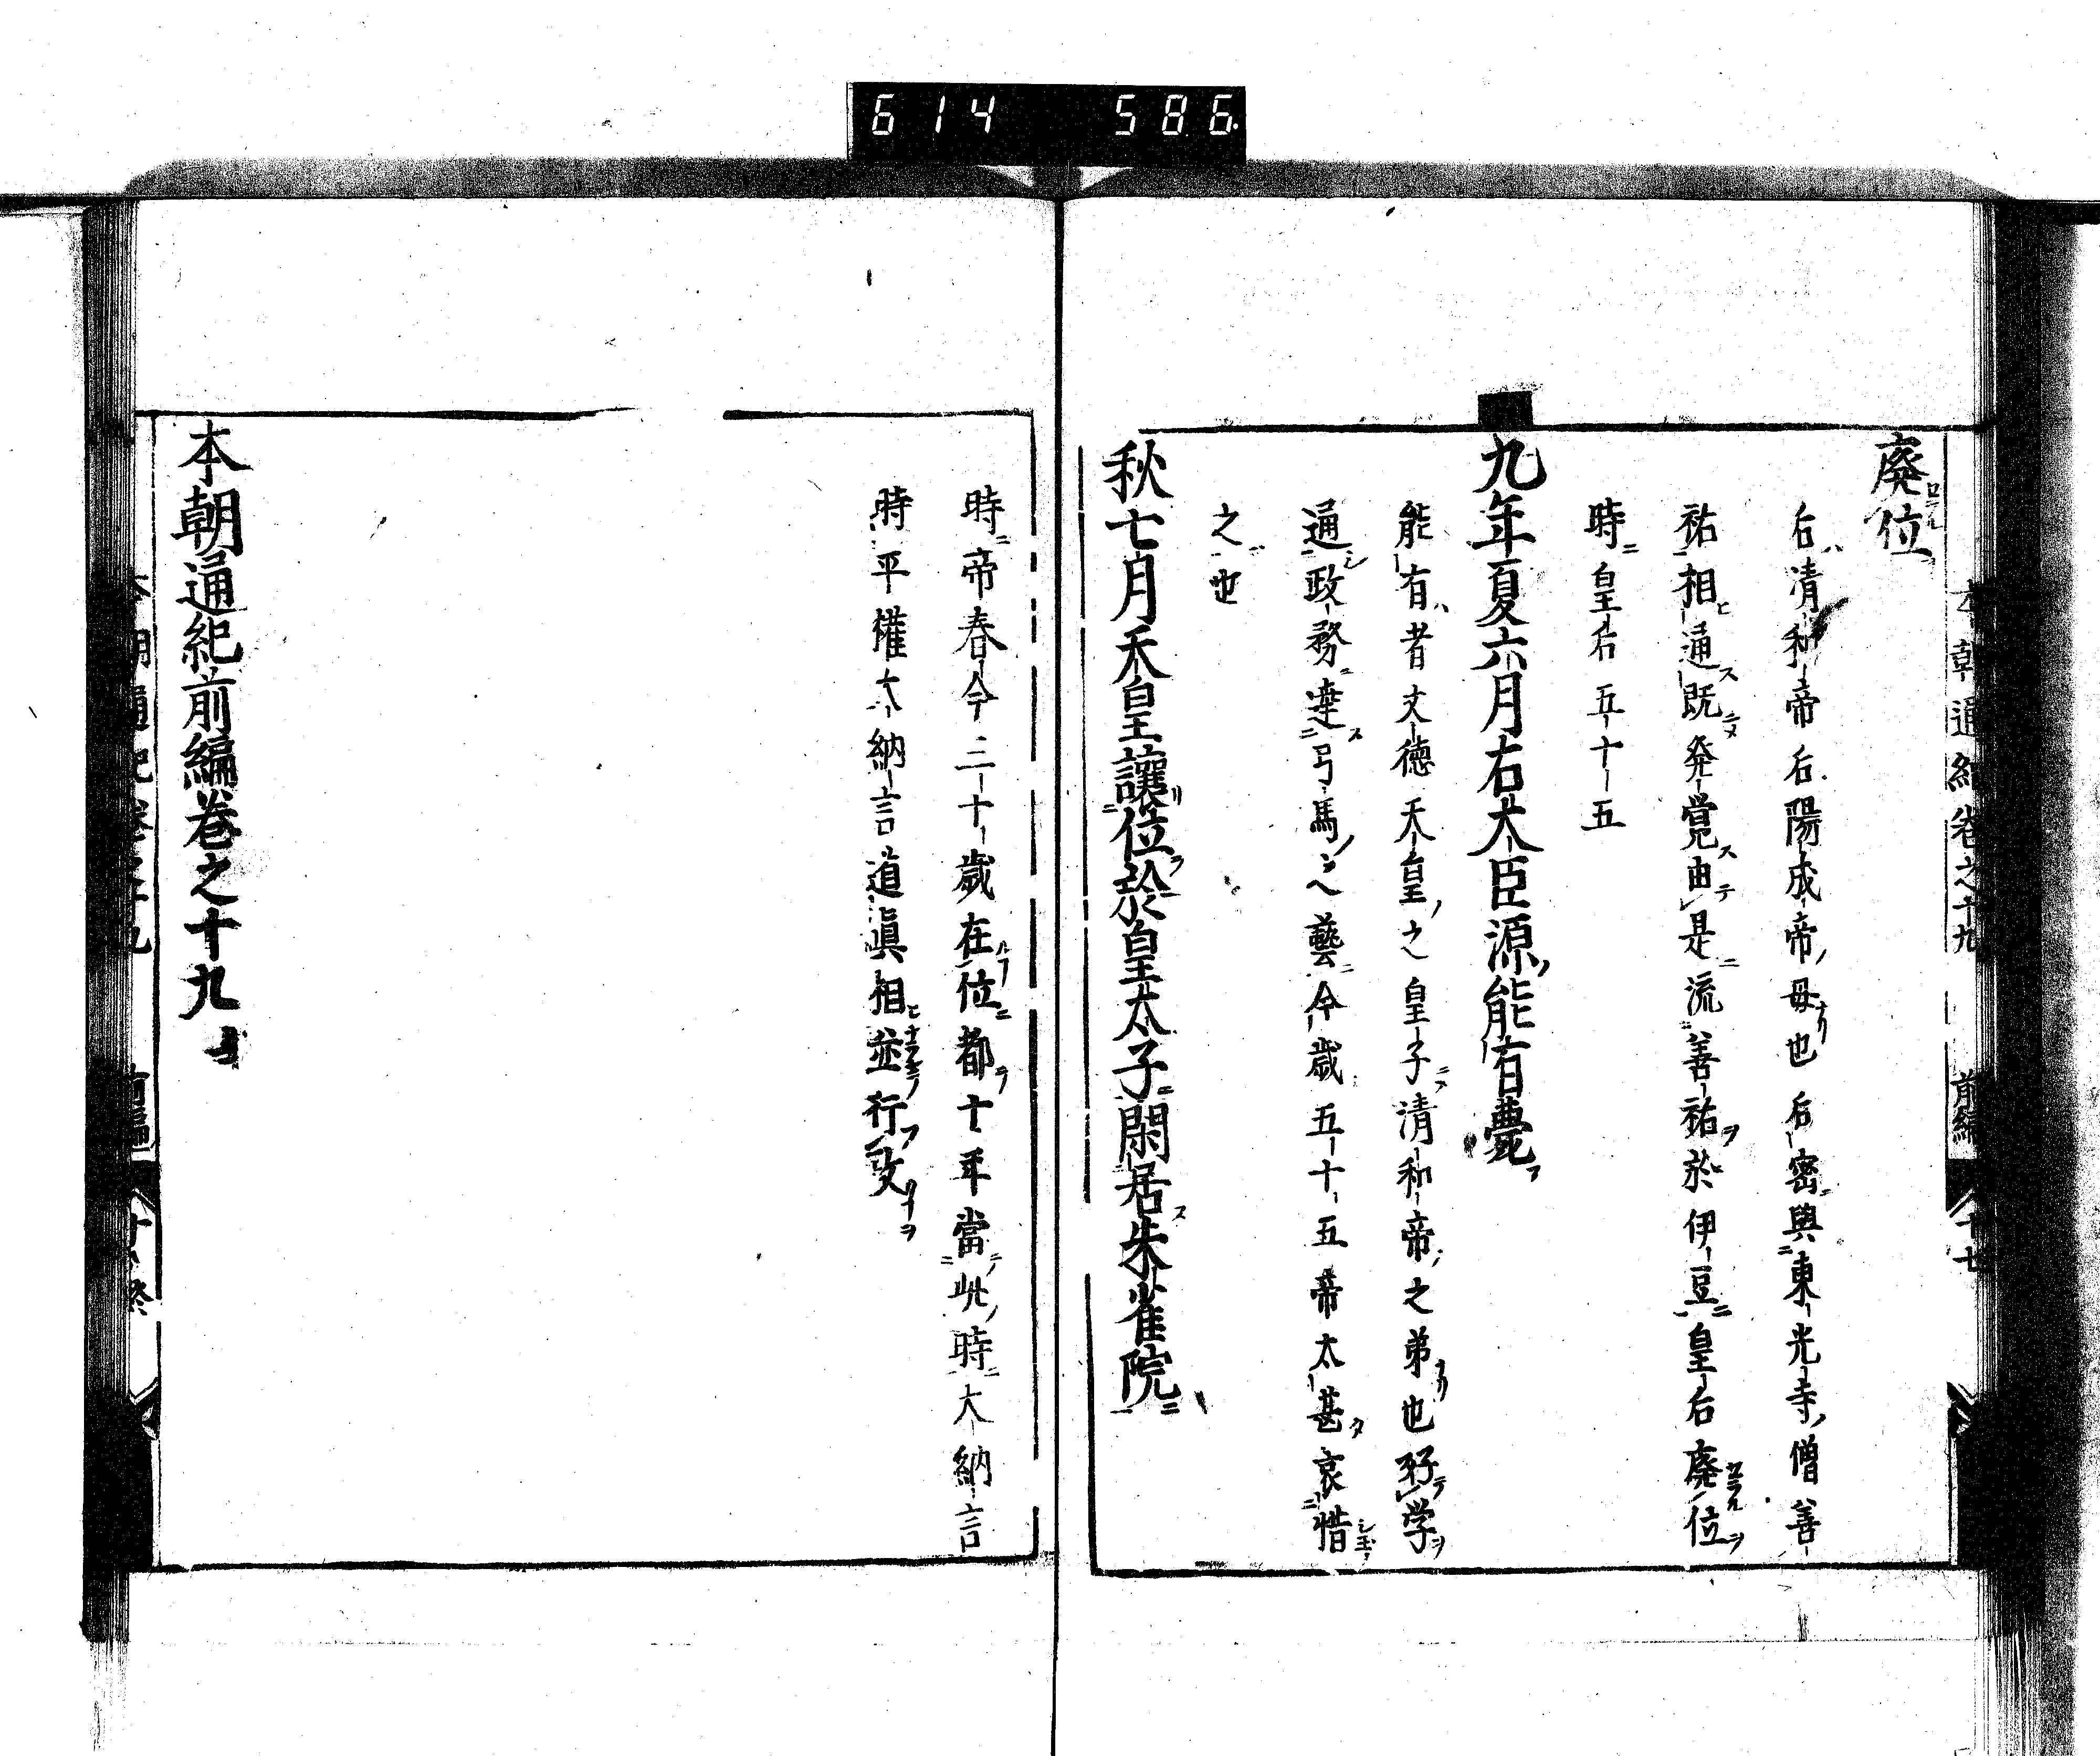 614 586
本朝通紀卷之十九 前編 十七
廢位
后清和帝后陽成帝母也后密與東光寺僧善
祐相通既発覚由是流善祐於伊豆皇后廢位
時皇后五十五
九年夏六月右大臣源能有薨
能有者文德天皇之皇子清和帝之弟也好学
通政務達弓馬之藝今歳五十五帝太甚哀惜
之也
秋七月天皇讓位於皇太子閑居朱雀院
時帝春今三十歳在位都十年當此時大納言
時平權大納言道眞相並行政
本朝通紀前編卷之十九